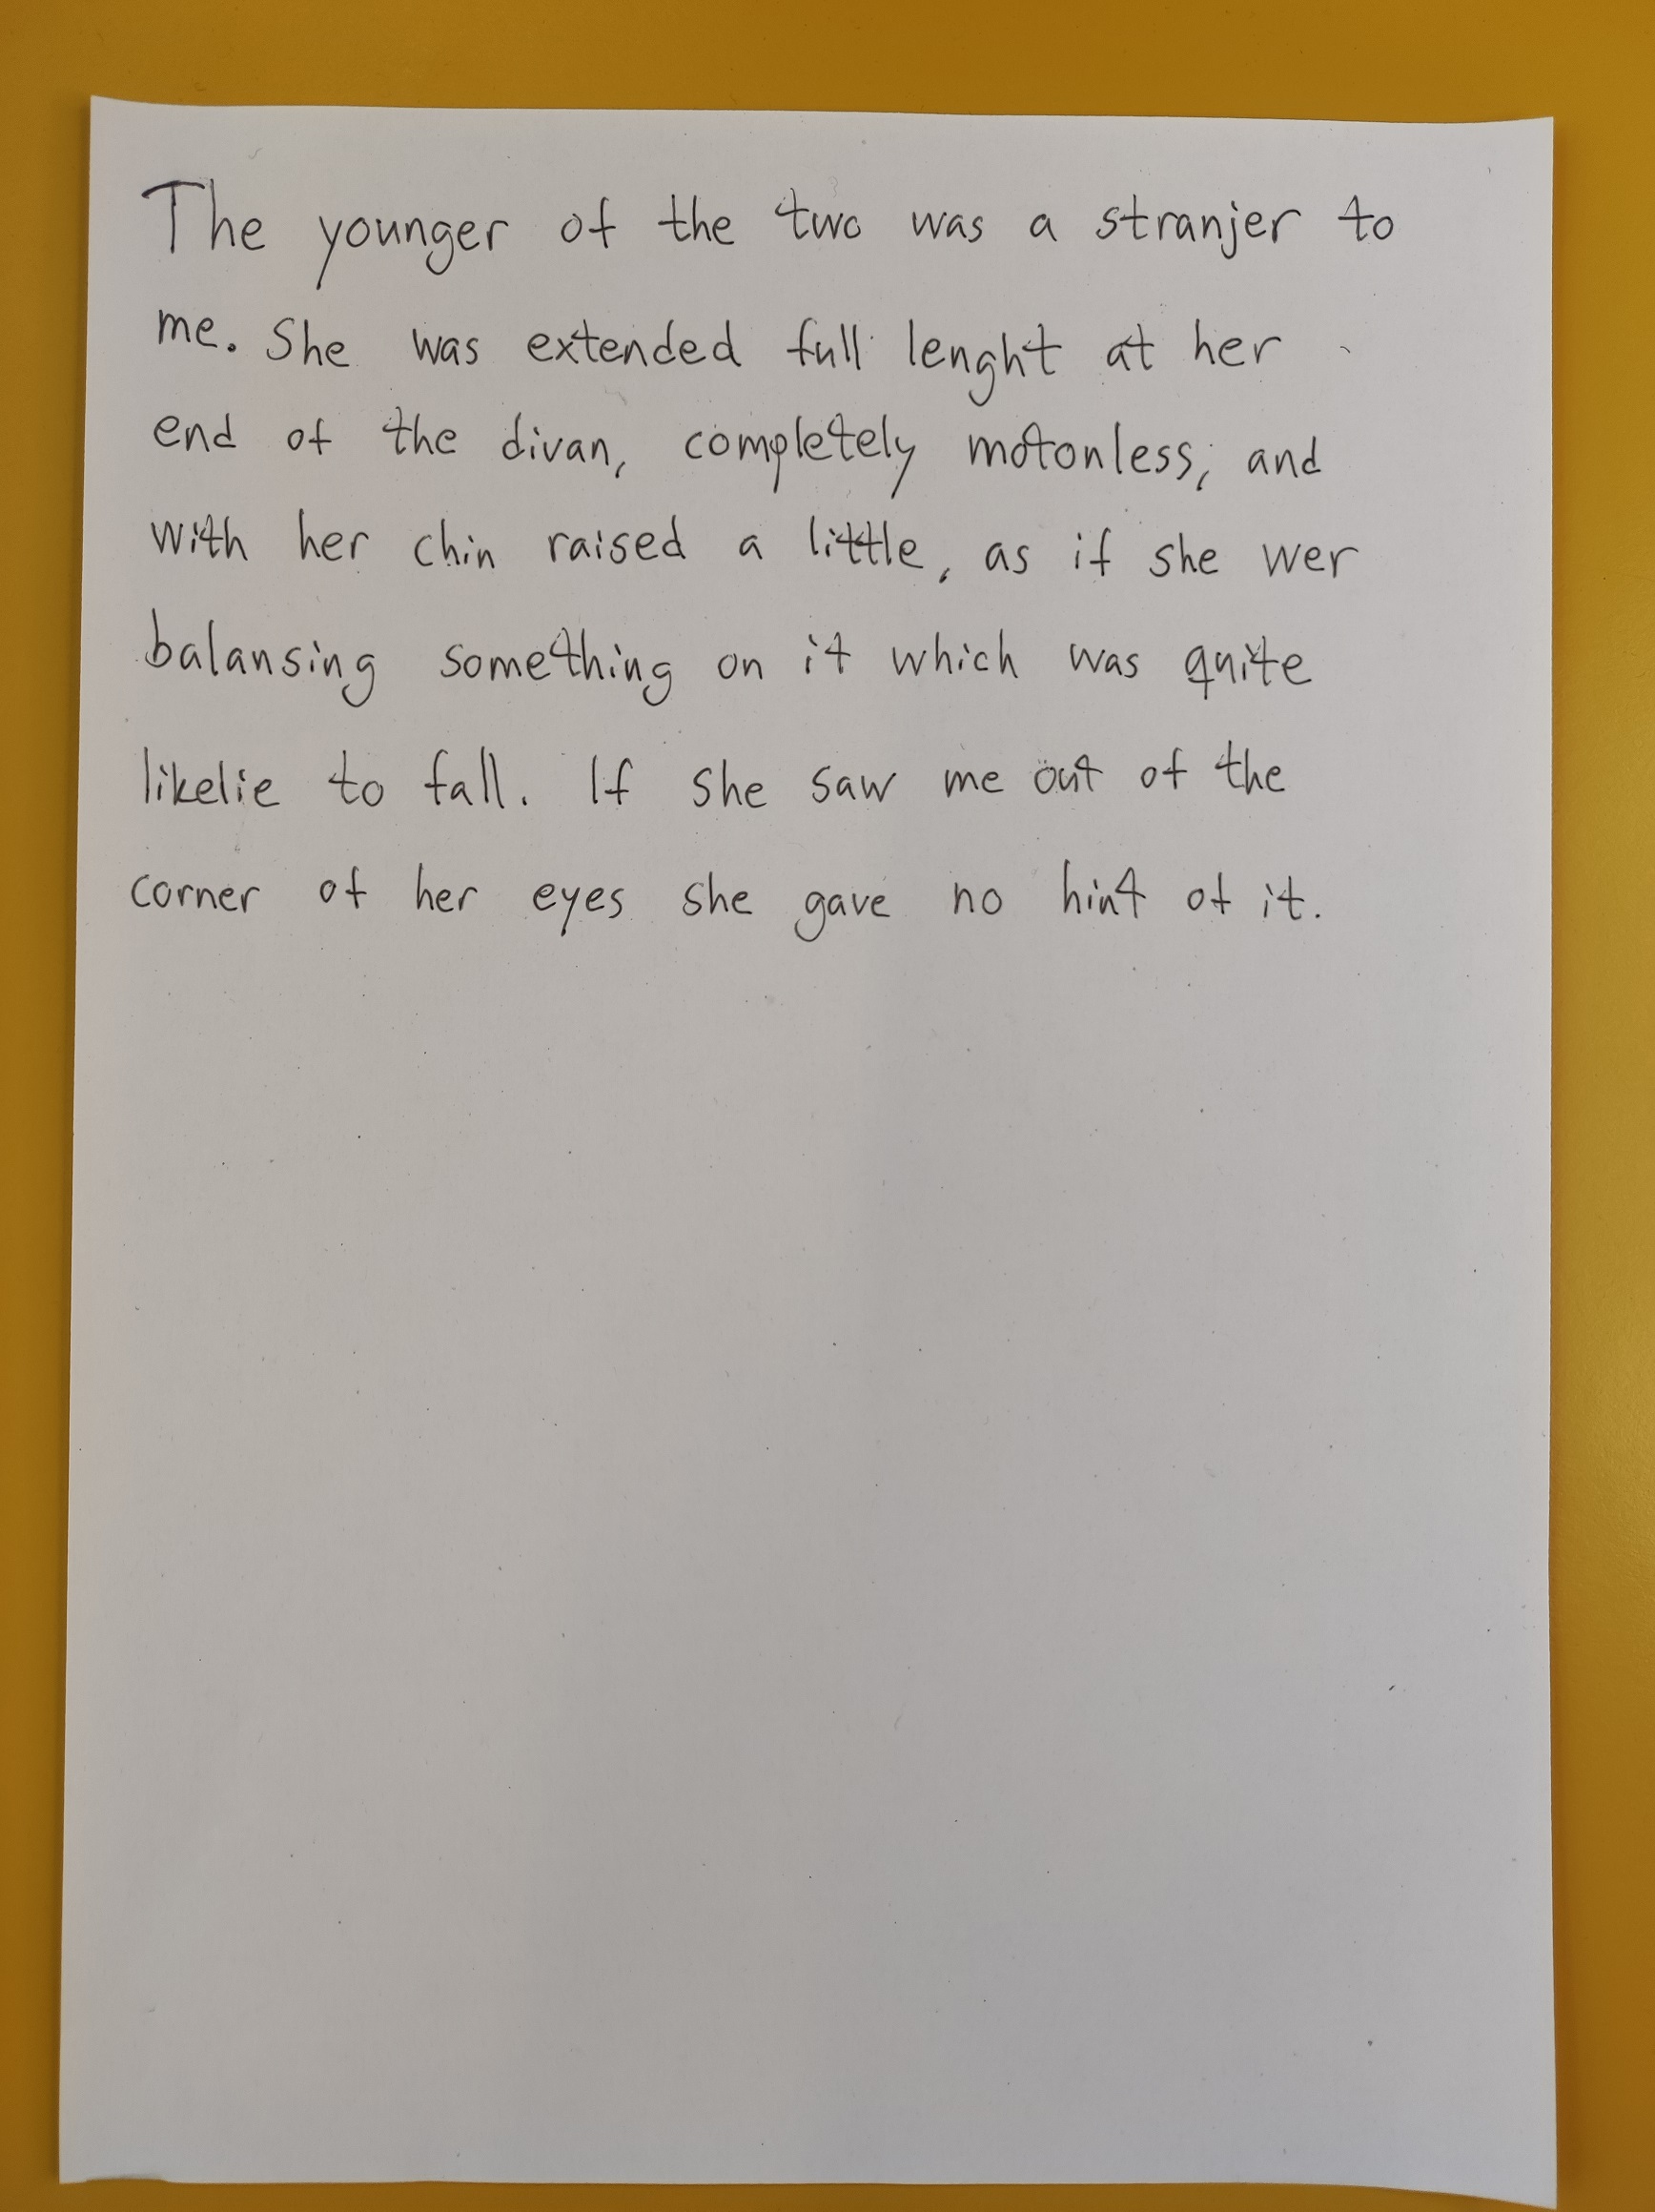 The younger of the two was a stranjer to
me. She was extended full lenght at her
end of the divan, completely motonless, and
with her chin raised a little, as if she wer
balansing something on it which was quite
likelie to fall. If she saw me out of the
corner of her eyes she gave no hint of it.